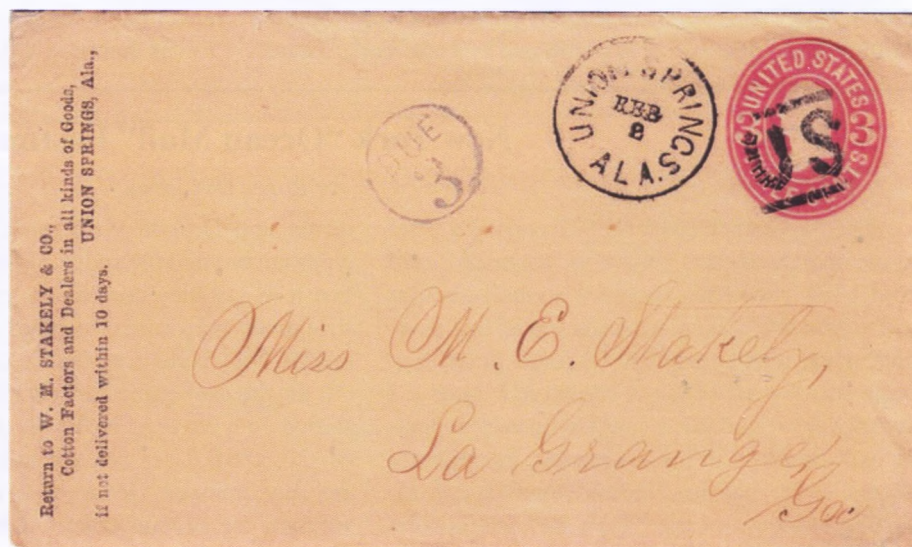 Return to W. M. STAKELY & CO.,
Cotton Factors and Dealers in all kinds of Goods,
UNION SPRINGS, Ala.,
if not delivered within 10 days.
DUE
3
UNION SPRINGS
FEB
8
ALA.
UNITED STATES
3 3
US
Miss M. E. Stakely,
La Grange,
Ga